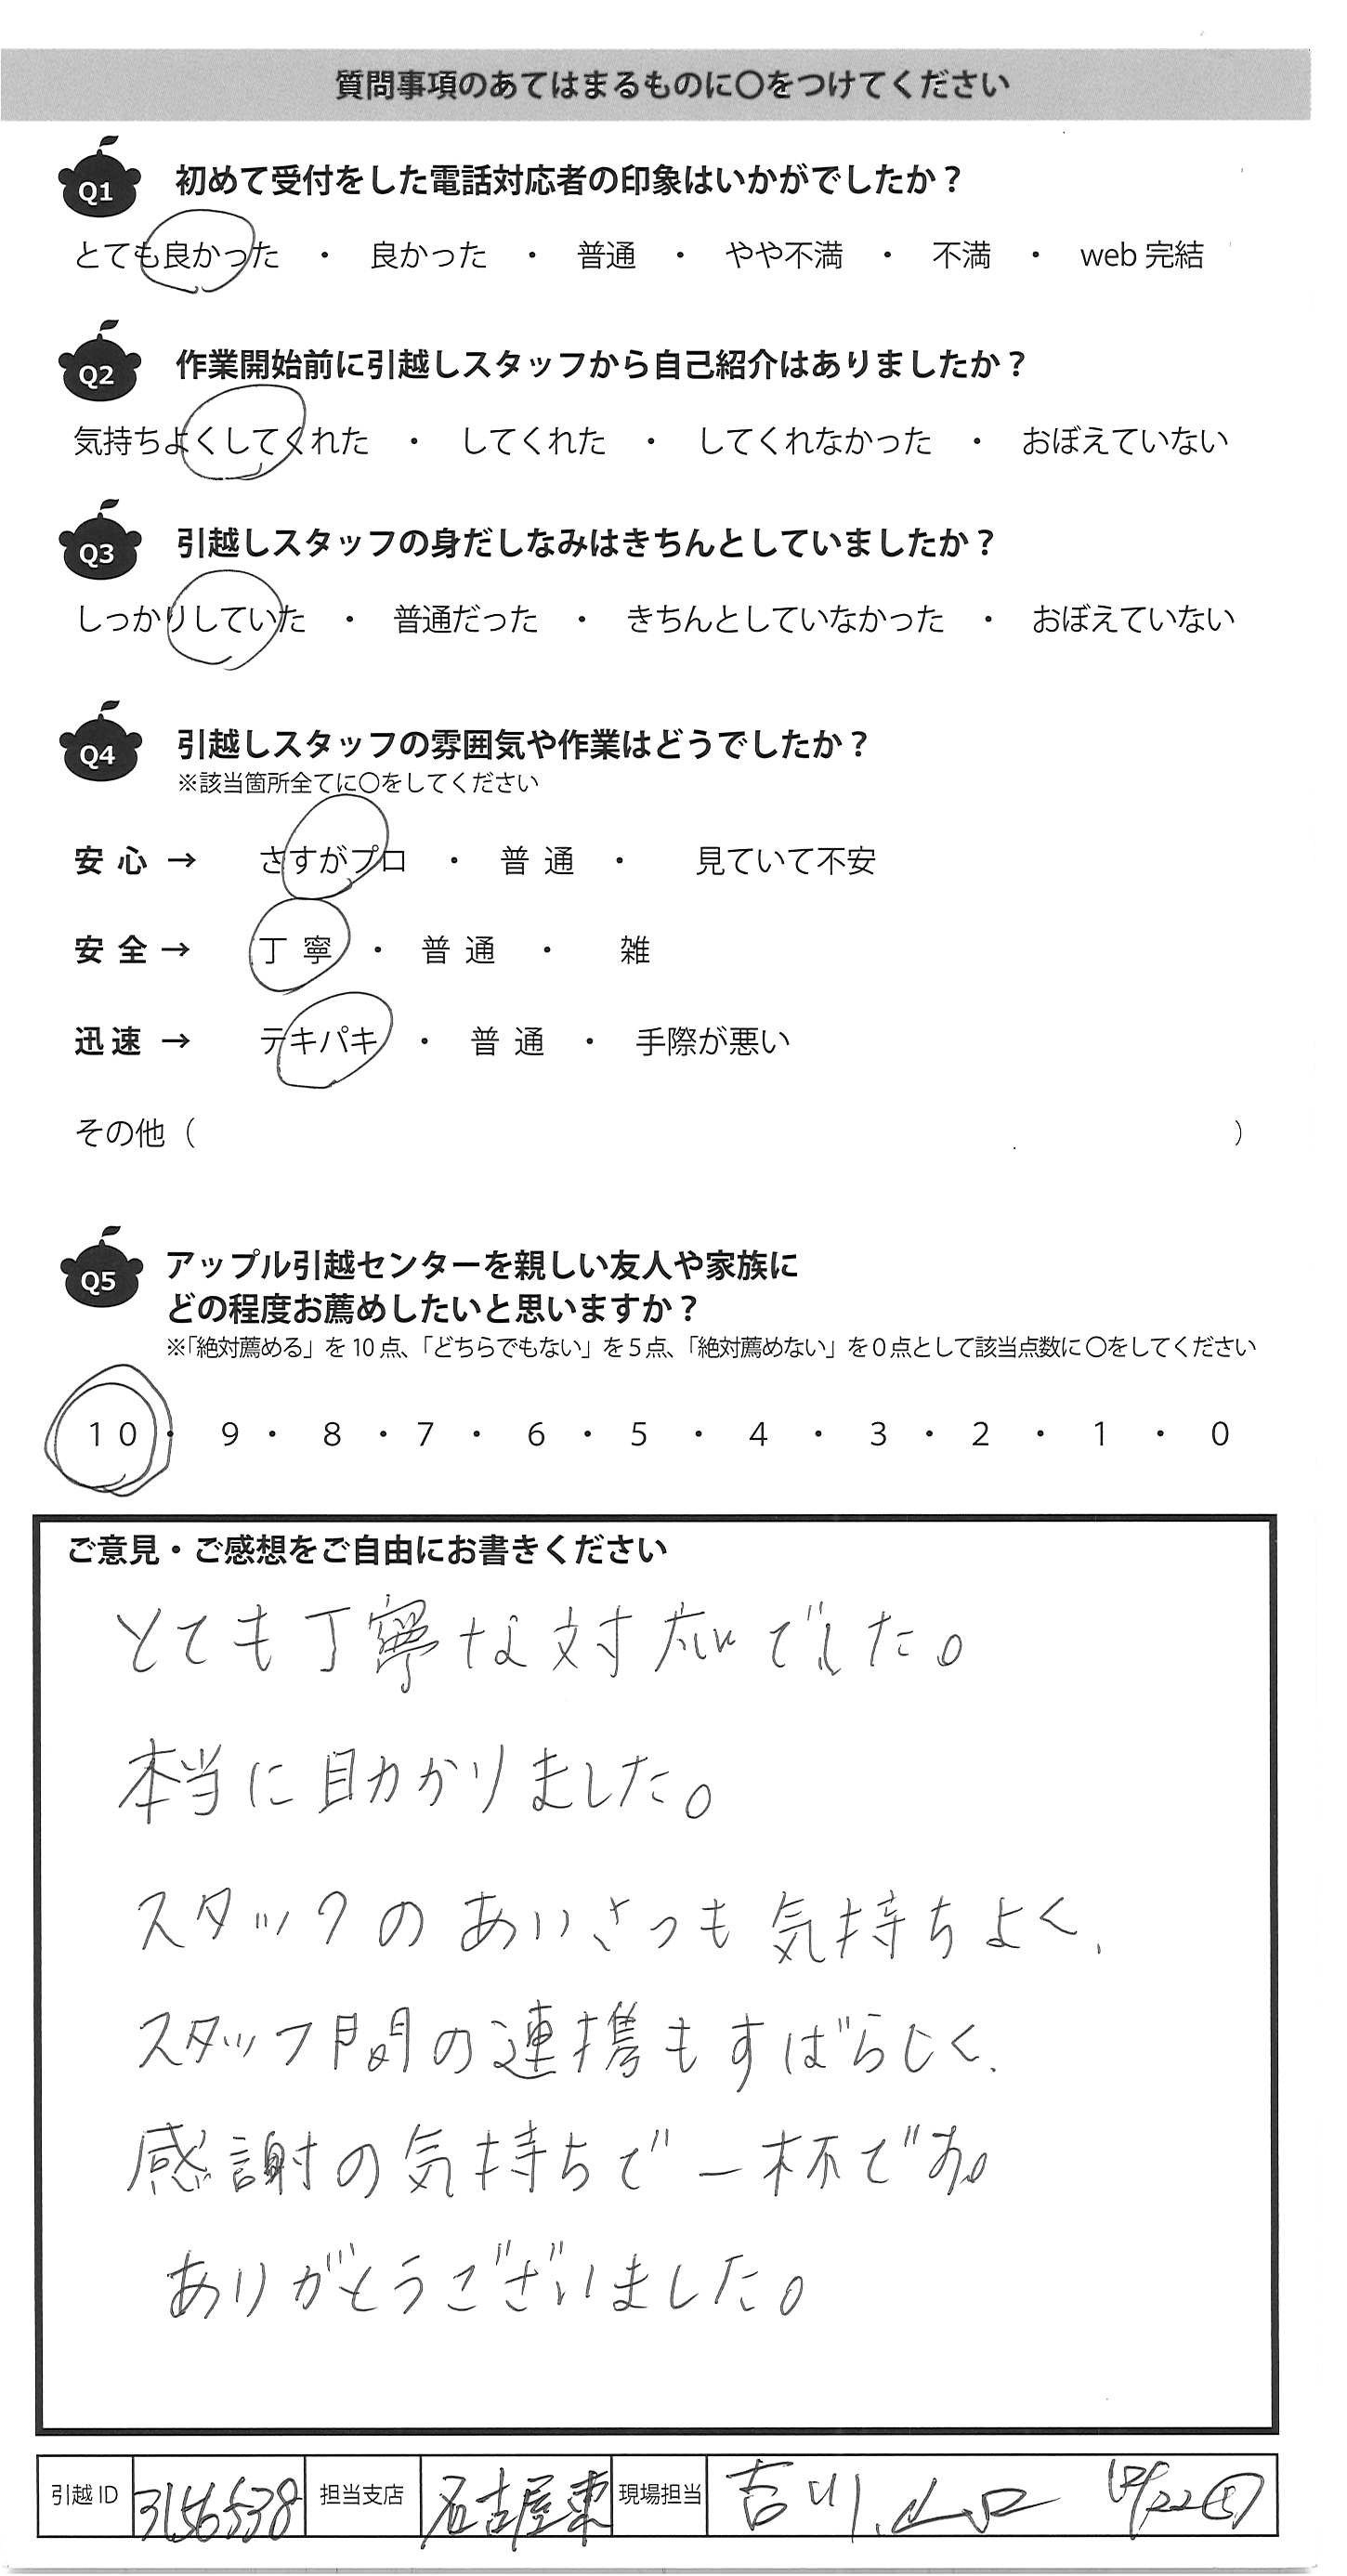 質問事項のあてはまるものに〇をつけてください
Q1 初めて受付をした電話対応者の印象はいかがでしたか？
とても良かった ・ 良かった ・ 普通 ・ やや不満 ・ 不満 ・ web 完結
Q2 作業開始前に引越しスタッフから自己紹介はありましたか？
気持ちよくしてくれた ・ してくれた ・ してくれなかった ・ おぼえていない
Q3 引越しスタッフの身だしなみはきちんとしていましたか？
しっかりしていた ・ 普通だった ・ きちんとしていなかった ・ おぼえていない
Q4 引越しスタッフの雰囲気や作業はどうでしたか？
※該当箇所全てに〇をしてください
安心 → さすがプロ ・ 普通 ・ 見ていて不安
安全 → 丁寧 ・ 普通 ・ 雑
迅速 → テキパキ ・ 普通 ・ 手際が悪い
その他（ ）
Q5 アップル引越センターを親しい友人や家族に
どの程度お薦めしたいと思いますか？
※「絶対薦める」を 10 点、「どちらでもない」を 5 点、「絶対薦めない」を 0 点として該当点数に 〇をしてください
10 ・ 9 ・ 8 ・ 7 ・ 6 ・ 5 ・ 4 ・ 3 ・ 2 ・ 1 ・ 0
ご意見・ご感想をご自由にお書きください
とても丁寧な対応でした。
本当に助かりました。
スタッフのあいさつも気持ちよく、
スタッフ間の連携もすばらしく、
感謝の気持ちで一杯です。
ありがとうございました。
引越 ID 3156538 担当支店 名古屋東 現場担当 吉川、山口